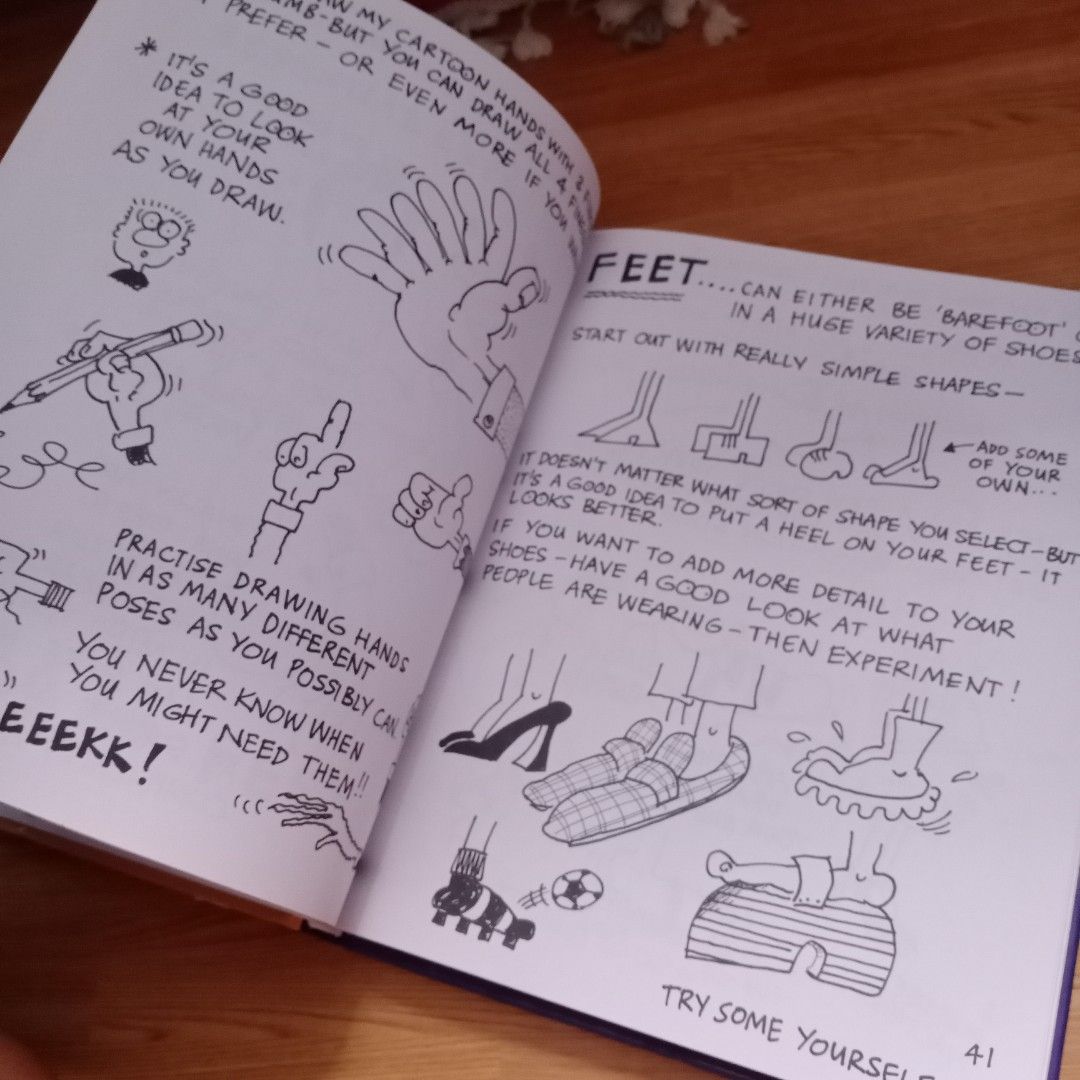 MY CARTOON HANDS WITH 3
BUT YOU CAN DRAW ALL 4
PREFER – OR EVEN MORE IF YOU
* IT'S A GOOD
IDEA TO LOOK
AT YOUR
OWN HANDS
AS YOU DRAW.
PRACTISE DRAWING HANDS
IN AS MANY DIFFERENT
POSES AS YOU POSSIBLY CAN.
YOU NEVER KNOW WHEN
YOU MIGHT NEED THEM!!
EEEKK!
FEET.... CAN EITHER BE 'BAREFOOT'
IN A HUGE VARIETY OF SHOES
START OUT WITH REALLY SIMPLE SHAPES –
ADD SOME
OF YOUR
OWN...
IT DOESN'T MATTER WHAT SORT OF SHAPE YOU SELECT – BUT
IT'S A GOOD IDEA TO PUT A HEEL ON YOUR FEET – IT
LOOKS BETTER.
IF YOU WANT TO ADD MORE DETAIL TO YOUR
SHOES – HAVE A GOOD LOOK AT WHAT
PEOPLE ARE WEARING – THEN EXPERIMENT!
TRY SOME YOURSELF
41